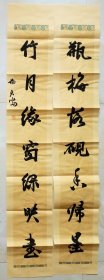 瓶梅落砚香归墨
竹月缘窗绿映书